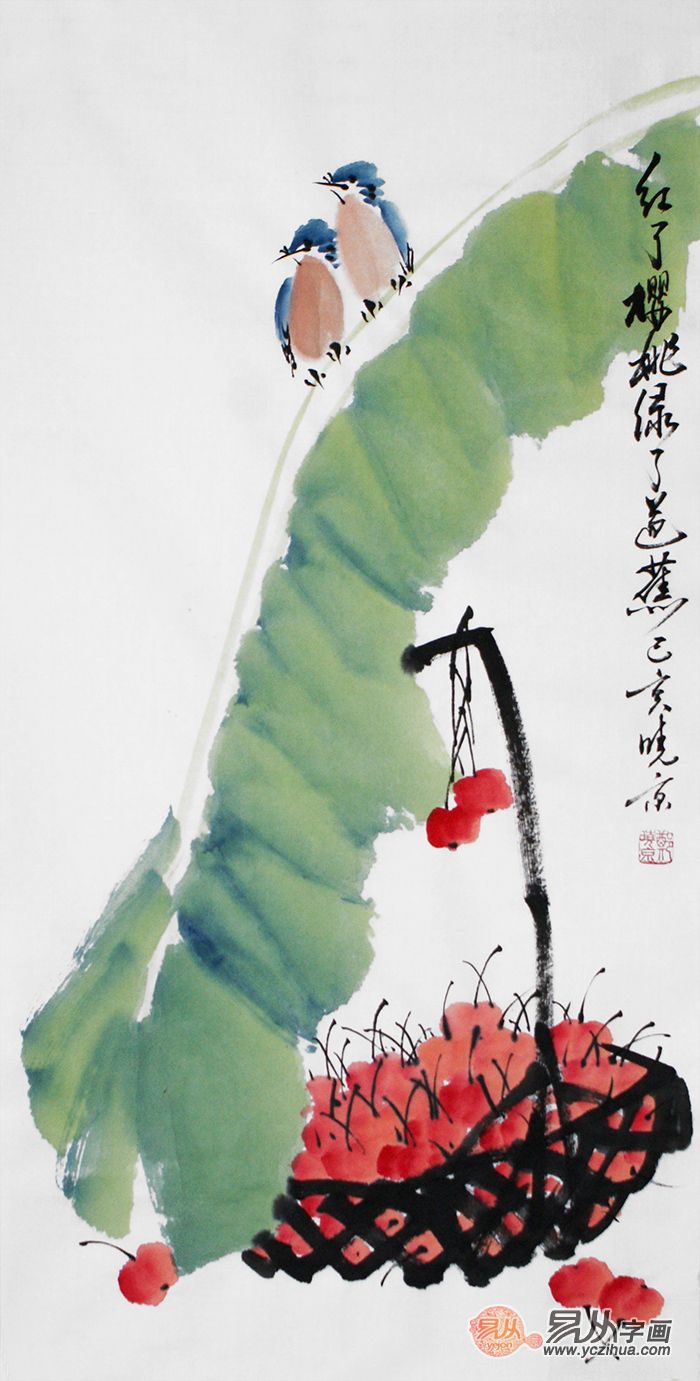 红了櫻桃绿了芭蕉己亥晓京
易从
易从字画
www.yczihua.com